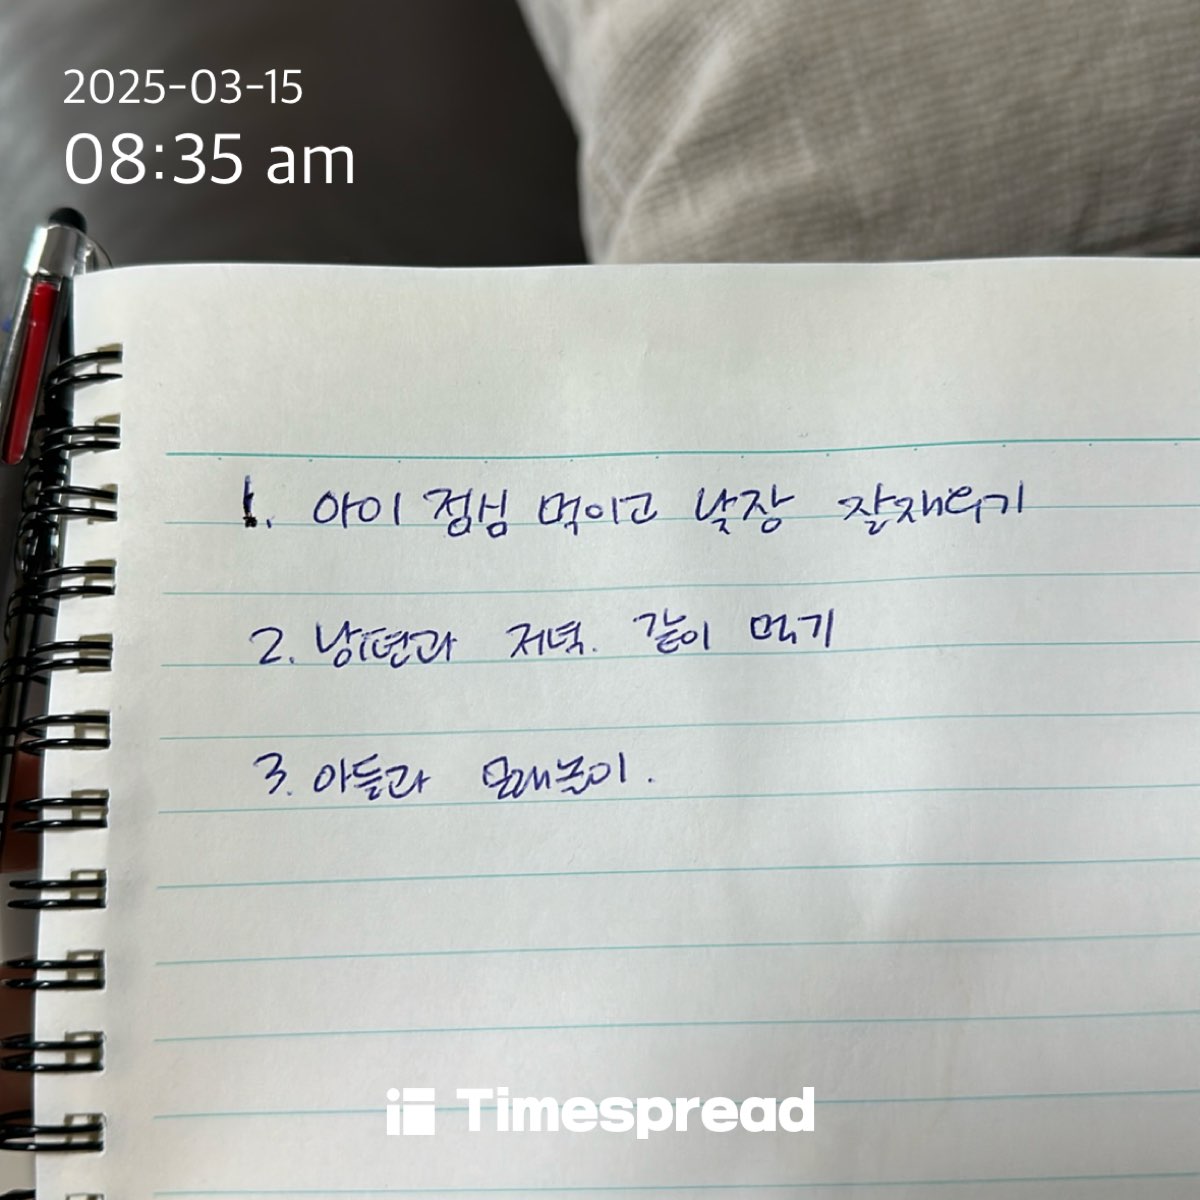 2025-03-15
08:35 am
1. 아이 점심 먹이고 낮잠 잘재우기
2. 남편과 저녁. 같이 먹기
3. 아들과 모래놀이.
Timespread